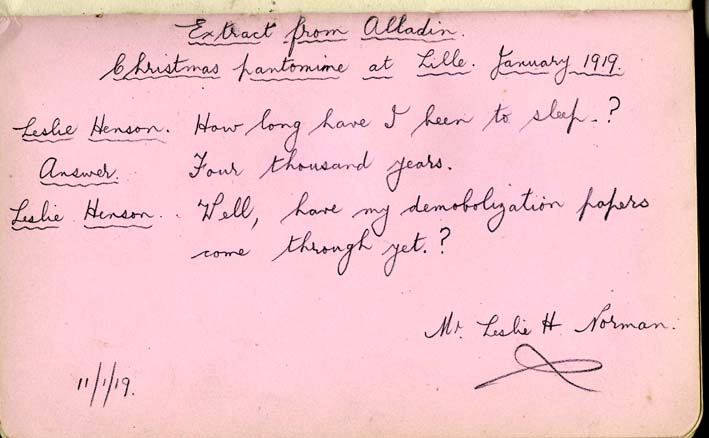 Extract from Alladin.
Christmas pantomime at Lille. January 1919.
Leslie Henson. How long have I been to sleep.?
Answer. Four thousand years.
Leslie Henson. Well, have my demobolization papers
come through yet.?
Mr. Leslie H. Norman.
11/1/19.